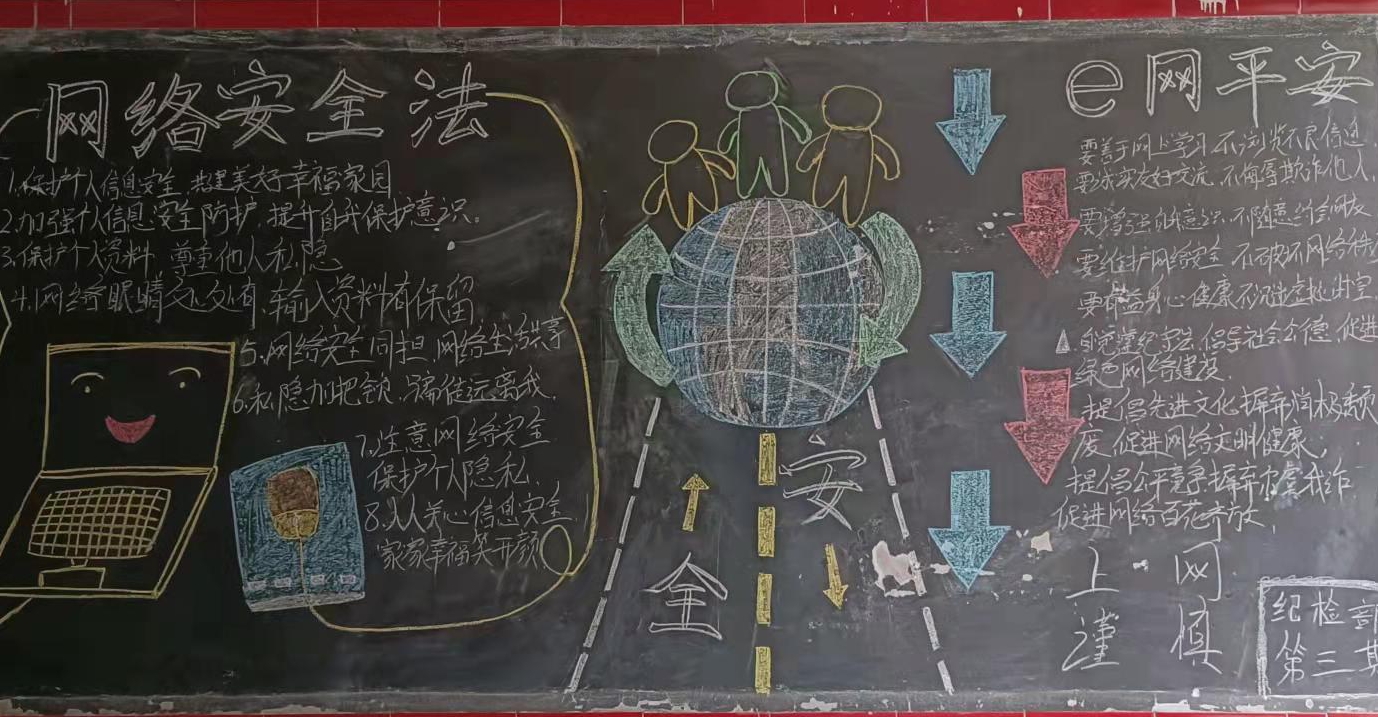 网络安全法
1.保护个人信息安全 共建美好幸福家园
2.加强个人信息安全防护,提升自我保护意识。
3.保护个人资料 尊重他人私隐
4.网络眼睛处处有,输入资料有保留
5.网络安全同担,网络生活共享
6.私隐加把锁,骗徒远离我.
7.注意网络安全
保护个人隐私.
8.人人关心信息安全
家家幸福笑开颜
安
全
e网平安
要善于网上学习 不浏览不良信息.
要诚实友好交流 不侮辱欺诈他人.
要增强自护意识 不随意约会网友
要维护网络安全 不破坏网络秩
要有益身心健康 不沉迷虚拟时空.
自觉遵纪守法,倡导社会公德,促进
绿色网络建设.
提倡先进文化 摒弃消极颓
废,促进网络文明健康,
提倡公平竞争 摒弃
促进网络百花齐放,
上网
谨慎
纪检部
第三期